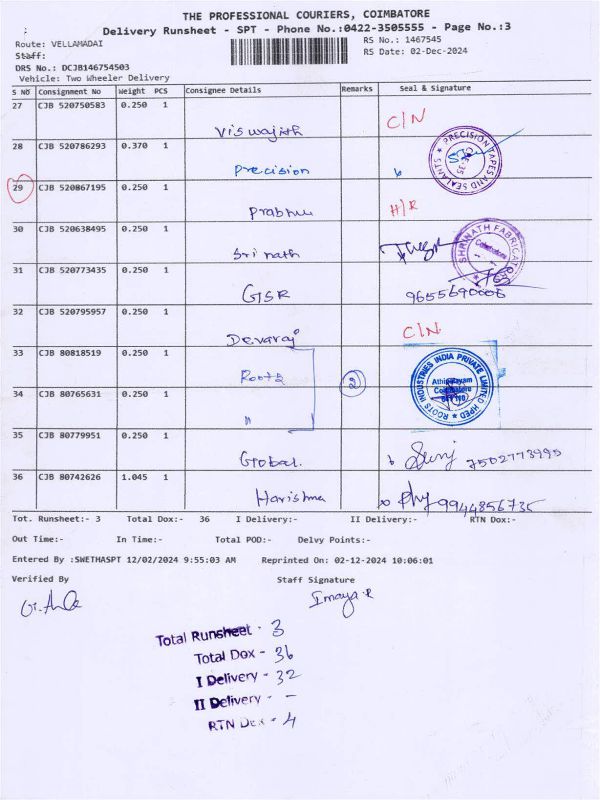 THE PROFESSIONAL COURIERS, COIMBATORE
Delivery Runsheet - SPT - Phone No.:0422-3505555 - Page No.:3
Route: VELLAMADAI
RS No.: 1467545
Staff:
RS Date: 02-Dec-2024
DRS No.: DCJB146754503
Vehicle: Two Wheeler Delivery
S NO Consignment No Weight PCS Consignee Details Remarks Seal & Signature
27 CJB 520750583 0.250 1 Viswajith C/N
28 CJB 520786293 0.370 1 Precision
PRECISION TAPES AND SEALANTS
29 CJB 520867195 0.250 1 Prabhu H/R
30 CJB 520638495 0.250 1 Srinath
Coimbatore
31 CJB 520773435 0.250 1 GSR 9655690006
32 CJB 520795957 0.250 1 Devaraj C/N
33 CJB 80818519 0.250 1 Roots 22
ROOTS INDUSTRIES INDIA PRIVATE LIMITED HPED
Athipalayam
Coimbatore
34 CJB 80765631 0.250 1 "
35 CJB 80779951 0.250 1 Global. 7502773995
36 CJB 80742626 1.045 1 Harishma 9944856735
Tot. Runsheet:- 3 Total Dox:- 36 I Delivery:- II Delivery:- RTN Dox:-
Out Time:- In Time:- Total POD:- Delvy Points:-
Entered By :SWETHASPT 12/02/2024 9:55:03 AM Reprinted On: 02-12-2024 10:06:01
Verified By Staff Signature
Imaya.R
Total Runsheet - 3
Total Dox - 36
I Delivery - 32
II Delivery - -
RTN Dox - 4